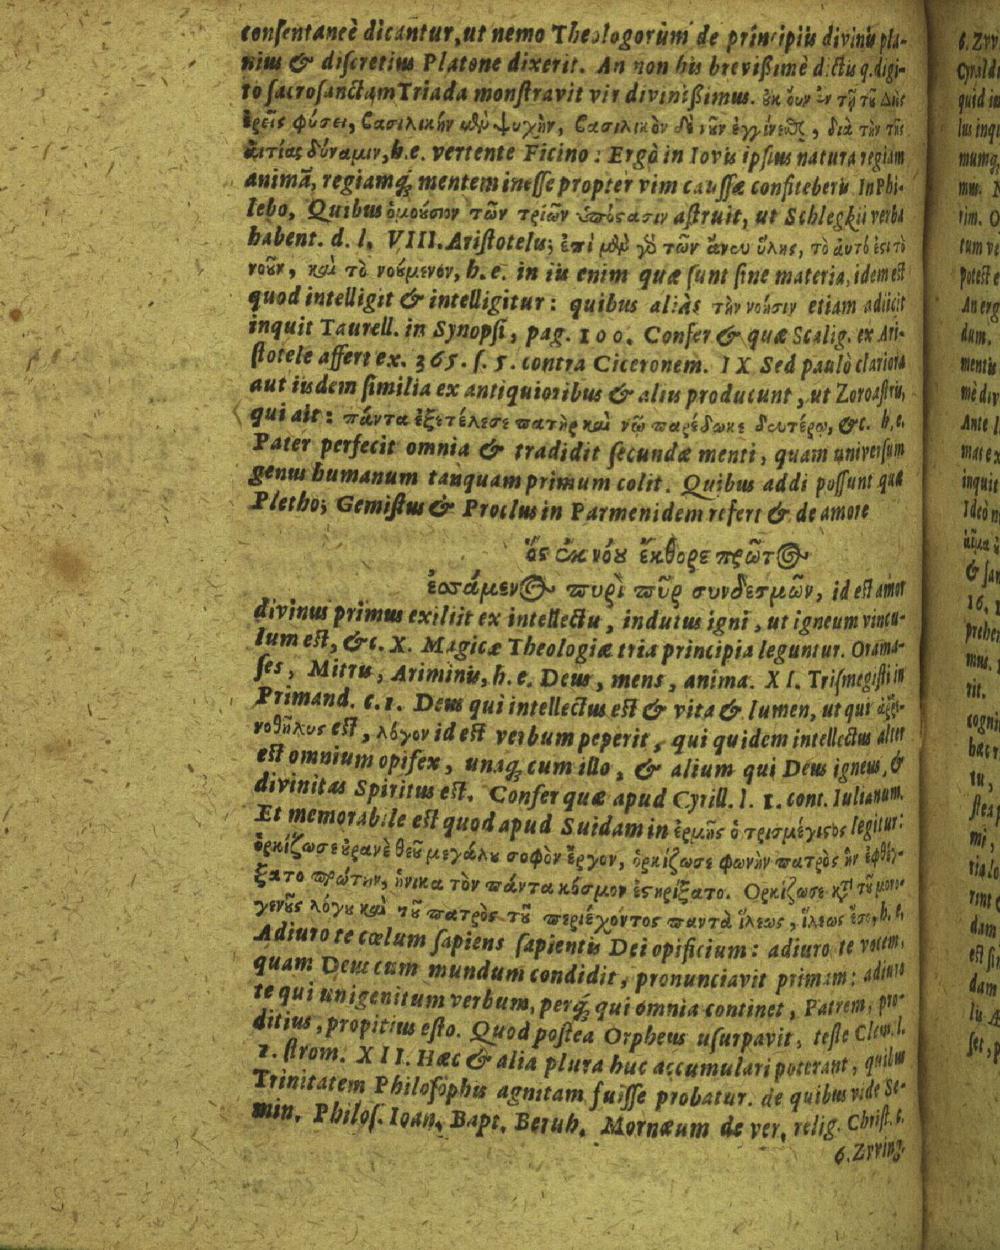 consentaneè dicantur, ut nemo Theologorum de principiis divinis pla-
nius & discretius Platone dixerit. An non his brevißimè dictis q. digi-
to sacrosanctam Triada monstravit vir divinißimus. ἐκ οὖν ἐν τῇ τοῦ Διὸς
ἐρεῖς φύσει, βασιλικὴν μὲν ψυχὴν, βασιλικὸν δὲ νοῦν ἐγγίνεσθαι, διὰ τὴν τῆς
αἰτίας δύναμιν, h.e. vertente Ficino: Ergò in Iovis ipsius natura regiam
animã, regiamq; mentem inesse propter vim caussæ confiteberis In Phi-
lebo, Quibus ὁμούσιον τῶν τριῶν ὑπόστασιν astruit, ut Schlegkii verba
habent. d. l. VIII. Aristotelis; ἐπὶ μὲν γὸ τῶν ἄνευ ὕλης, τὸ αὐτό ἐστι τὸ
νοοῦν, καὶ τὸ νοούμενον, h.e. in iis enim quæ sunt sine materia, idem est
quod intelligit & intelligitur: quibus aliàs τὴν νοῦσιν etiam adiicit
inquit Taurell. in Synopsi, pag. 100. Confer & quæ Scalig. ex Ari-
stotele affert ex. 365. s. 5. contra Ciceronem. IX Sed paulò clariora
aut iisdem similia ex antiquioribus & aliis producunt, ut Zoroastris,
qui ait: πάντα ἐξετέλεσε πατὴρ καὶ νῷ παρέδωκε δευτέρῳ, &c. h.e.
Pater perfecit omnia & tradidit secundæ menti, quam universum
genus humanum tanquam primum colit. Quibus addi possunt quæ
Pletho; Gemistus & Proclus in Parmenidem refert & de amore
ὃς ἐκ νόου ἔκθορε πρῶτος
ἑσσάμενος πυρὶ πῦρ συνδεσμῶν, id est amor
divinus primus exiliit ex intellectu, indutus igni, ut igneum vincu-
lum est, &c. X. Magicæ Theologiæ tria principia leguntur. Orama-
ses, Mitris, Ariminis, h. e. Deus, mens, anima. XI. Trismegisti in
Primand. c. 1. Deus qui intellectus est & vita & lumen, ut qui ἀῤῥε-
νοθῆλυς est, λόγον id est verbum peperit, qui quidem intellectus alter
est omnium opifex, unaq; cum illo, & alium qui Deus igneus, &
divinitas Spiritus est. Confer quæ apud Cyrill. l. 1. cont. Iulianum.
Et memorabile est quod apud Suidam in ἑρμῆς ὁ τρισμέγιστος legitur:
ὁρκίζω σε οὐρανὲ θεοῦ μεγάλου σοφὸν ἔργον, ὁρκίζω σε φωνὴν πατρὸς ἣν ἐφθέγ-
ξατο πρώτην, ἡνίκα τὸν πάντα κόσμον ἐστηρίξατο. Ορκίζω σε κτ τοῦ μονο-
γενοῦς λόγου καὶ τοῦ πατρὸς τοῦ περιέχοντος παντὰ ἵλεως, ἵλεως ἔσο, h.e.
Adiuro te cœlum sapiens sapientis Dei opificium: adiuro te vocem,
quam Deus cum mundum condidit, pronunciavit primam: adiuro
te qui unigenitum verbum, perq; qui omnia continet, Patrem, pro-
ditius, propitius esto. Quod postea Orpheus usurpavit, teste Clem. l.
1. strom. XII. Hæc & alia plura huc accumulari poterant, quibus
Trinitatem Philosophis agnitam fuisse probatur. de quibus vide Se-
min. Philos. Ioan. Bapt. Bernh. Mornæum de ver. relig. Christ. c.
6. Zvving.